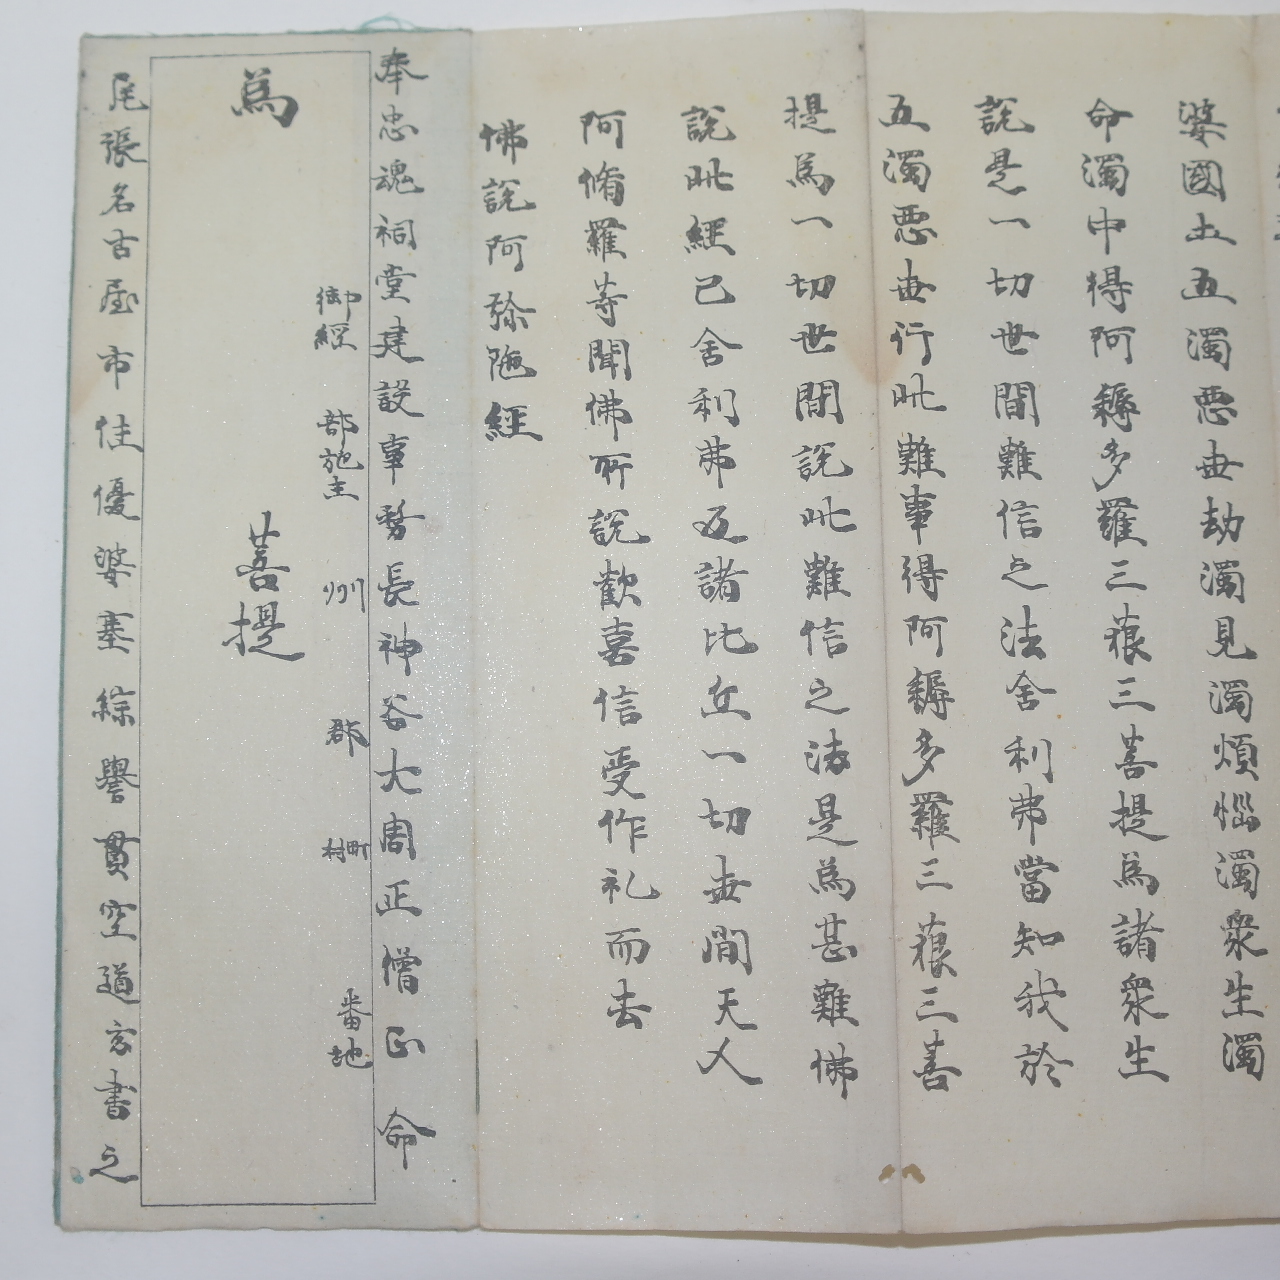 婆國土五濁惡世劫濁見濁煩惱濁衆生濁
命濁中得阿耨多羅三藐三菩提為諸衆生
說是一切世間難信之法舍利弗當知我於
五濁惡世行此難事得阿耨多羅三藐三菩
提為一切世間說此難信之法是為甚難佛
說此經已舍利弗及諸比丘一切世間天人
阿脩羅等聞佛所說歡喜信受作礼而去
佛說阿弥陀經
奉忠魂祠堂建設事務長神谷大周正僧正命
御經 部施主 州 郡 町村 番地
為 菩提
尾張名古屋市住優婆塞綜譽貫空道玄書之